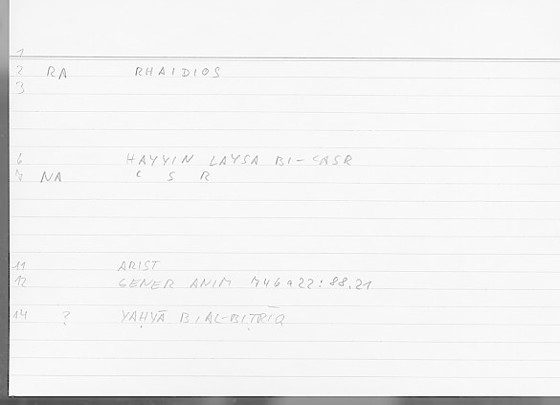 1
2 RA RHAIDIOS
3
6 HAYYIN LAYSA BI-ʿASR
7 NA ʿ S R
11 ARIST
12 GENER ANIM 746a22:88.21
14 ? YAḤYĀ B.AL-BIṬRĪQ